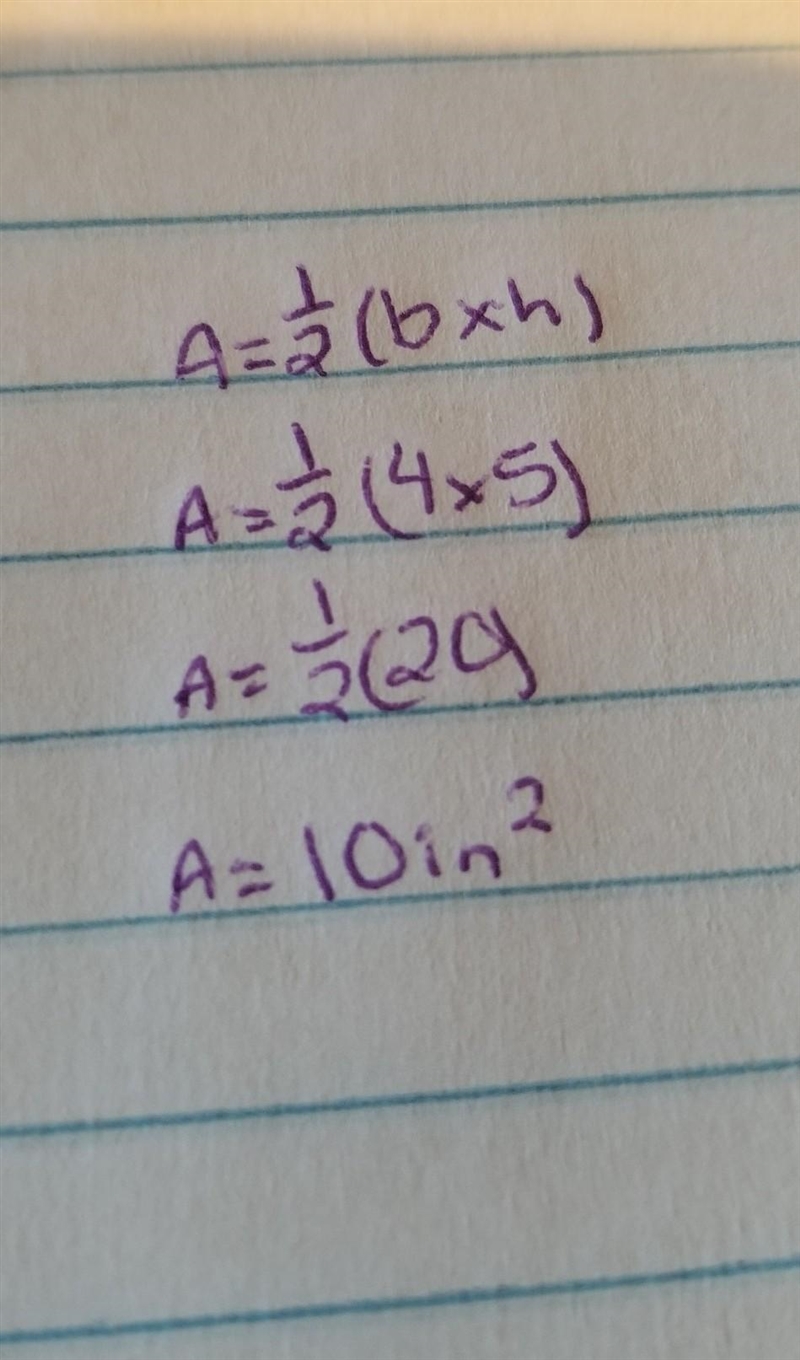 A = 1/2 (b x h)
A = 1/2 (4 x 5)
A = 1/2 (20)
A = 10 in²